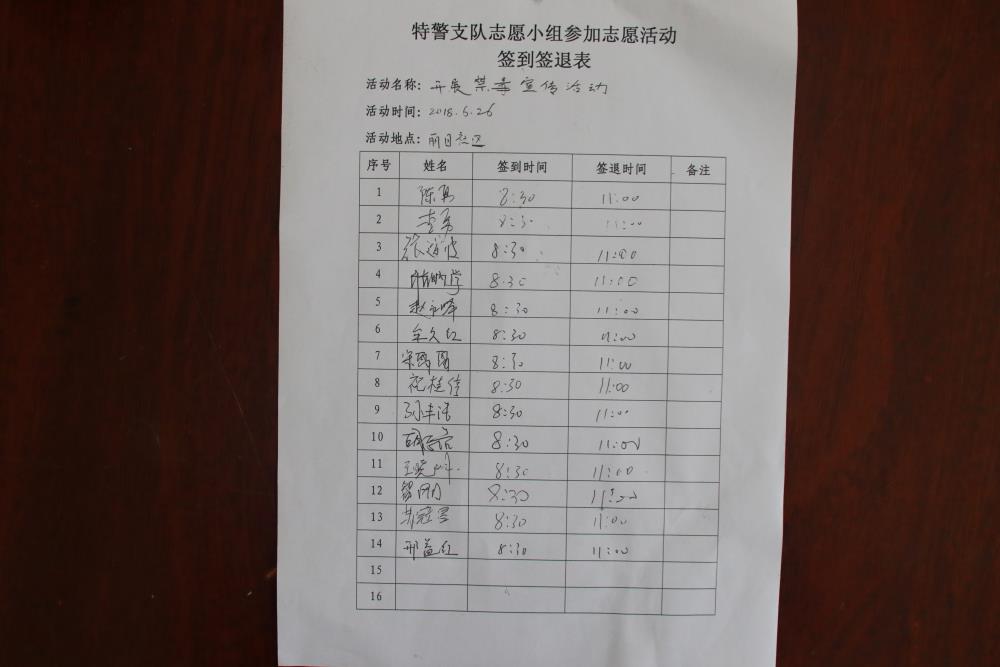 特警支队志愿小组参加志愿活动
签到签退表
活动名称：开展禁毒宣传活动
活动时间：2018.5.26
活动地点：丽日社区
序号 姓名 签到时间 签退时间 备注
1 8:30 11:00
2 李勇 8:30 11:00
3 8:30 11:00
4 8:30 11:00
5 8:30 11:00
6 8:30 11:00
7 8:30 11:00
8 祝桂佳 8:30 11:00
9 8:30 11:00
10 8:30 11:00
11 8:30 11:00
12 8:30 11:00
13 8:30 11:00
14 邢益红 8:30 11:00
15
16